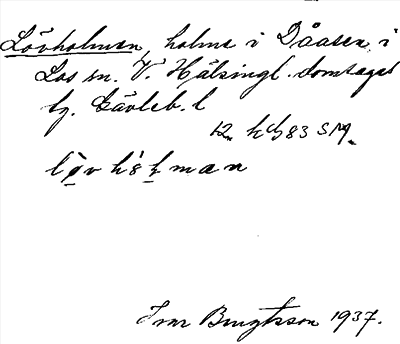 Lövholmen, holme i Dåasen, i
Los sn. V. Hälsingl. domsaga
hg. Gävleb. l
12 h c 83 S M.
lövhòlman
Ivar Bengtsson 1937.